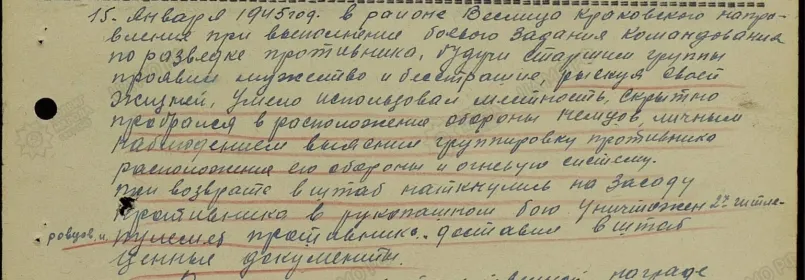 15. Января 1945 год. в районе Веслица Краковского напра-
вления при выполнение боевого задания командования
по разведке противника, будучи старшим группы
проявил мужество и бесстрашие, рискуя своей
жизней, умело использовал местность, скрытно
пробрался в расположение обороны немцов, личным
наблюдением выяснил группировку противника
расположение его обороны и огневую систему.
При возврате в штаб наткнулись на засаду
противника в рукопашном бою уничтожен 2х гитле-
ровцов, и пулемёт противника. доставил в штаб
ценные документы.
награде